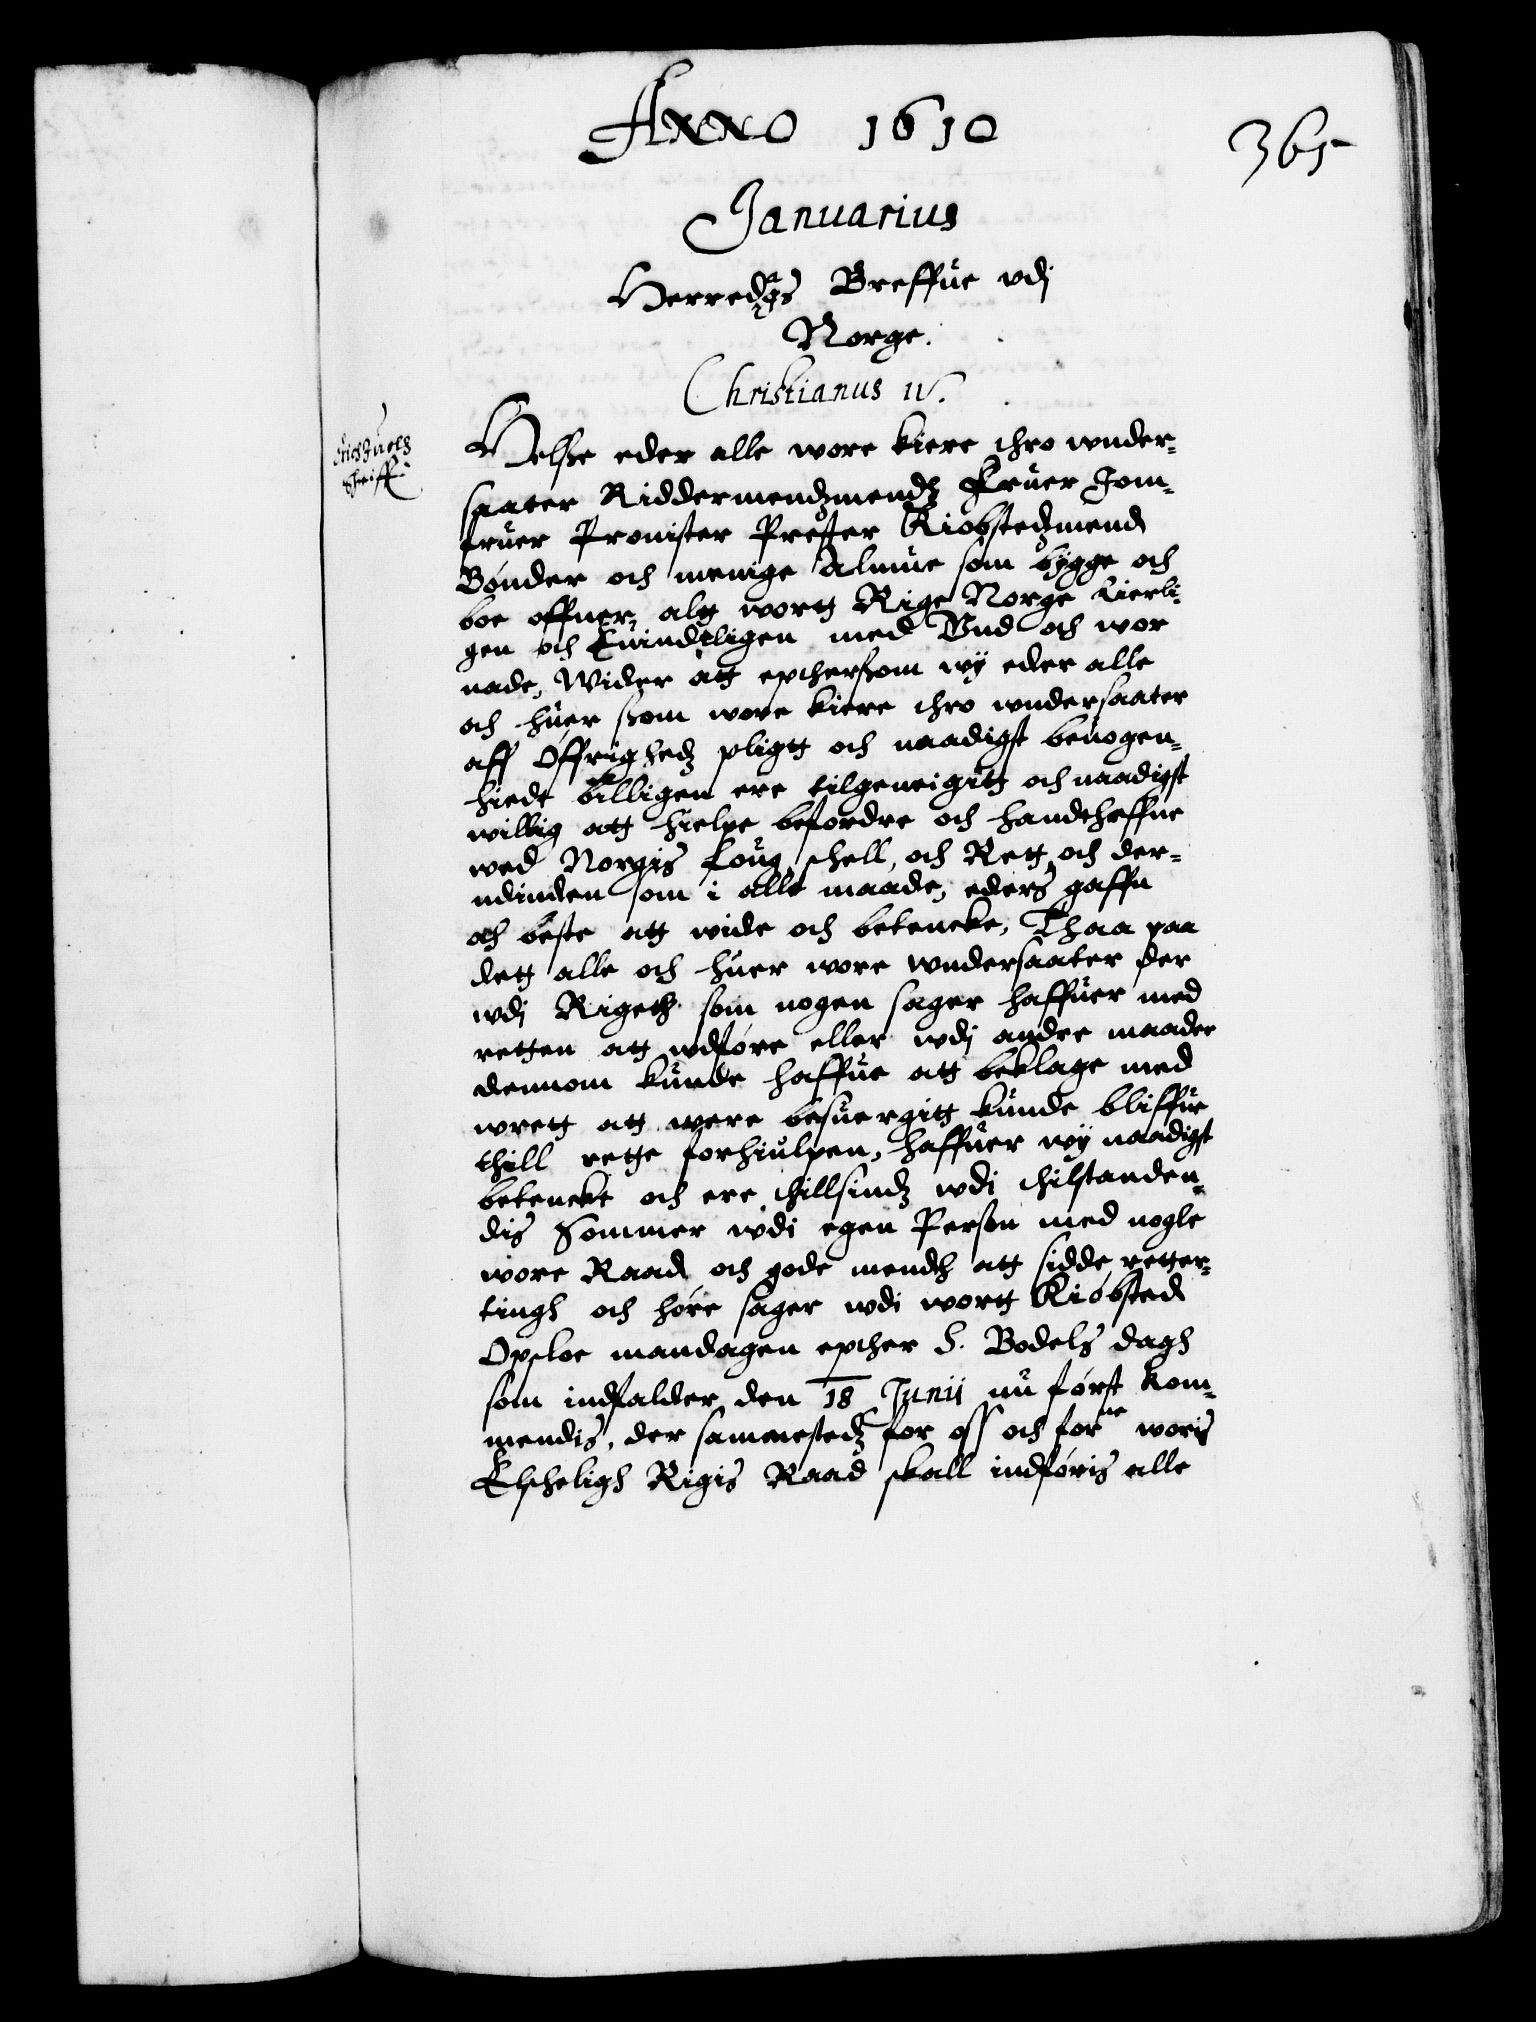 Anno 1610
365
Januarius
Herredags Breffue vdj
Norge.
Christianus IV.
Helsse eder alle wore kiere thro wnder¬
saater Riddermendzmendz Fruer Jom¬
fruer Prouister Prester Kiøbstedzmend
Bønder och menige Almue som bygge och
boe offuer alt wortt Rige Norge kierli¬
gen och Euindeligen med Gud och wor
naade, Wider att epthersom wÿ eder alle
och huer som wore kiere thro wndersaater
aff Øffrighedz pligtt och naadigst beuogen¬
hiedt billigen ere tilgeneigitt och naadigst
willig att hielpe befordre och handthaffue
wed Norgis Loug, schell, och Rett, och der¬
udinden som i alle maade, eders gaffn
och beste att wide och betencke, Thaa paa
dett alle och huer wore wndersaater der
wdj Rigeth som nogen sager haffuer med
retten att wdføre eller wdj andre maader
dennom kunde haffue att beklage med
wrett att were besuergitt kunde bliffue
thill rette forhiulpen, haffuer wÿ naadigst
betenckt och ere thillsindz wdi thilstanden¬
dis Sommer wdi egen Person med nogle
wore Raad och gode mendh att sidde retter¬
tingh och høre sager wdi wortt Kiøbsted
Opsloe mandagen epther S. Bodels dagh
som indfalder den 18 Junii nu først kom¬
mendis, der sammestedz for oss och forne woris
Elscheligh Rigis Raad skall indføris alle